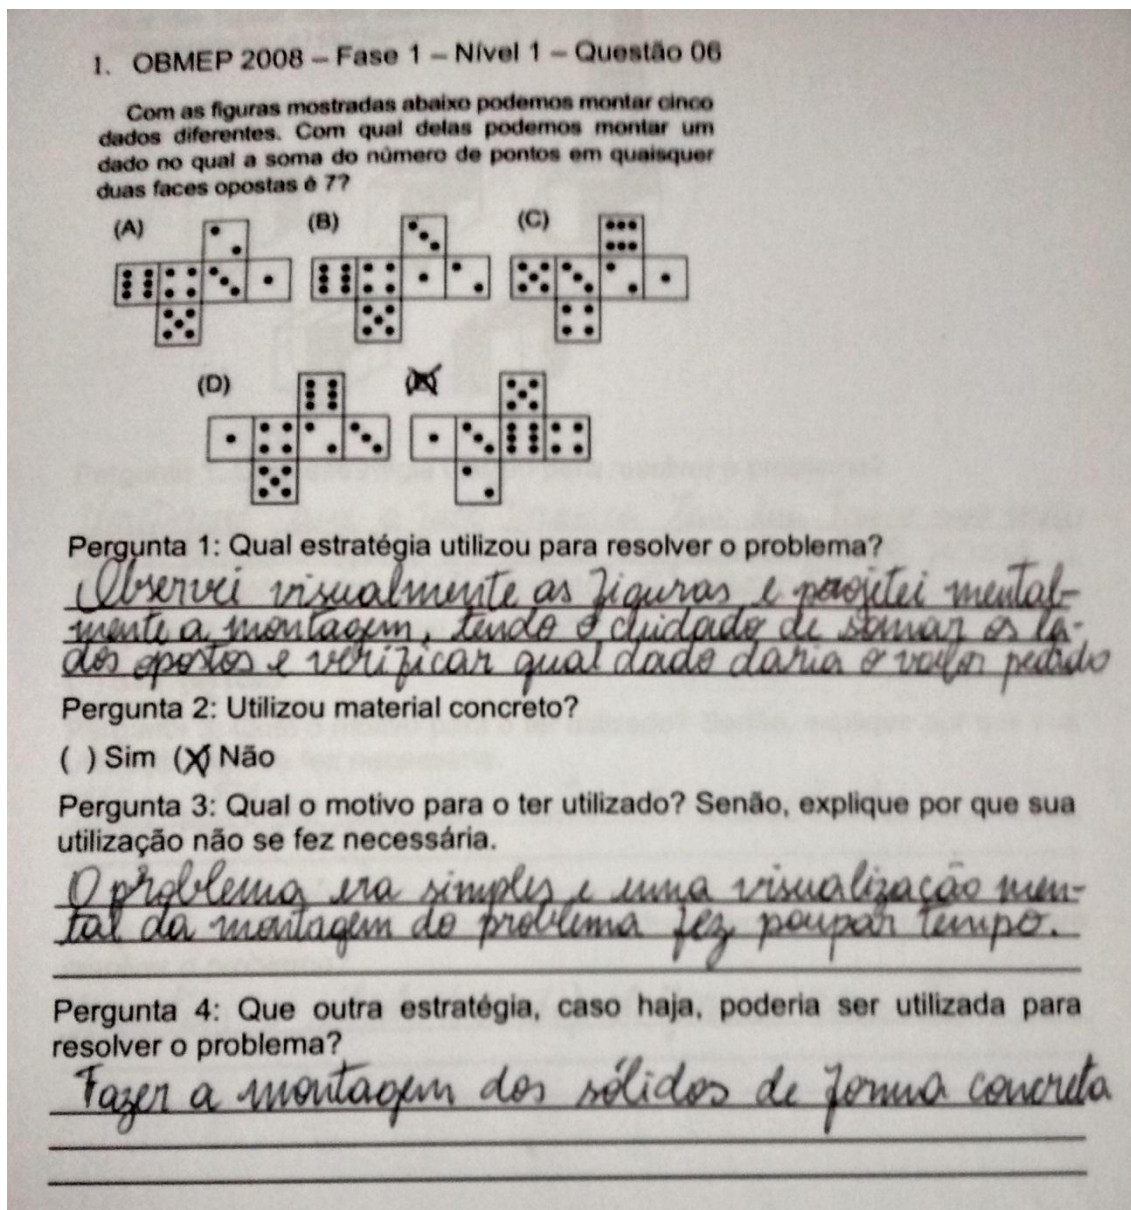 1. OBMEP 2008 – Fase 1 – Nível 1 – Questão 06
Com as figuras mostradas abaixo podemos montar cinco
dados diferentes. Com qual delas podemos montar um
dado no qual a soma do número de pontos em quaisquer
duas faces opostas é 7?
(A) (B) (C)
(D) (E)
Pergunta 1: Qual estratégia utilizou para resolver o problema?
Observei visualmente as figuras e projetei mental-
mente a montagem, tendo o cuidado de somar os la-
dos opostos e verificar qual dado daria o valor pedido
Pergunta 2: Utilizou material concreto?
( ) Sim (X) Não
Pergunta 3: Qual o motivo para o ter utilizado? Senão, explique por que sua
utilização não se fez necessária.
O problema era simples e uma visualização men-
tal da montagem do problema fez poupar tempo.
Pergunta 4: Que outra estratégia, caso haja, poderia ser utilizada para
resolver o problema?
Fazer a montagem dos sólidos de forma concreta